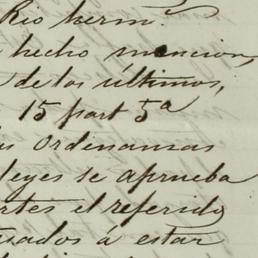 Rio herm.
hecho mencion,
de los últimos,
15 part 5ª
Ordenansas
leyes se aprueba
el referido
á estar